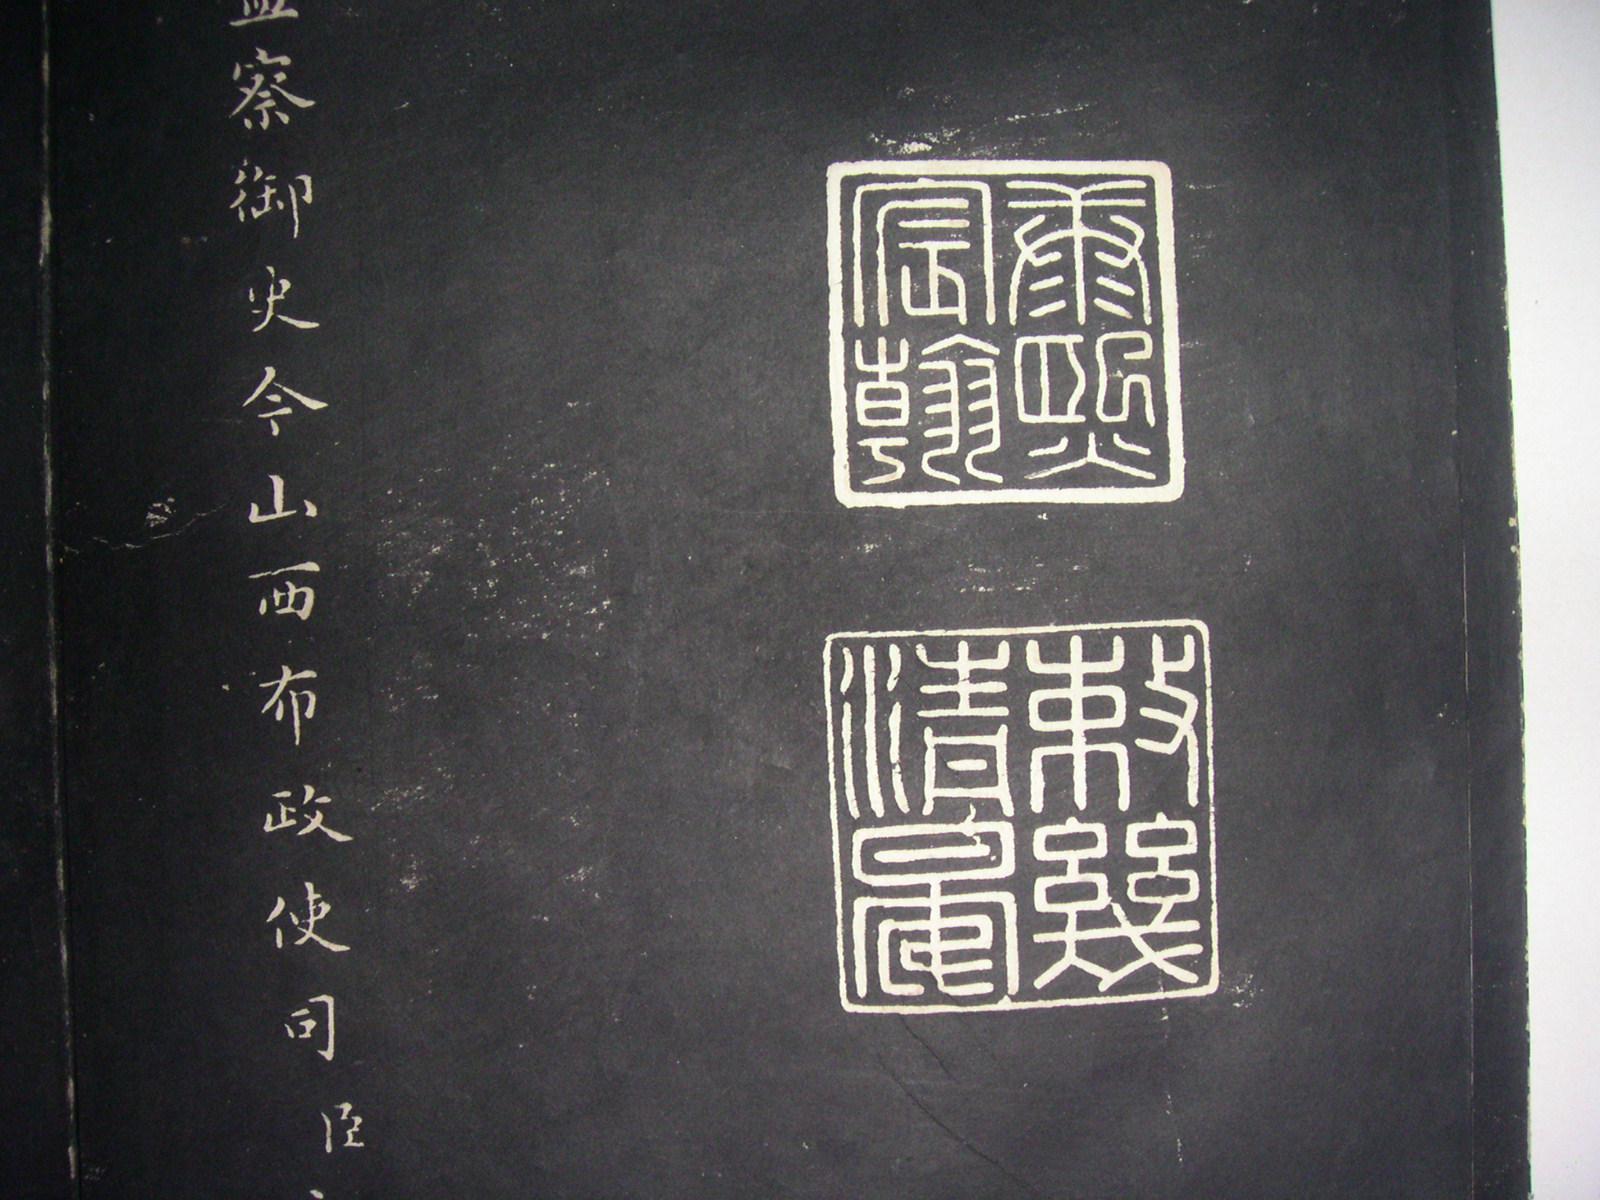 康熙
宸翰
敕幾
清晏
監察御史今山西布政使司臣